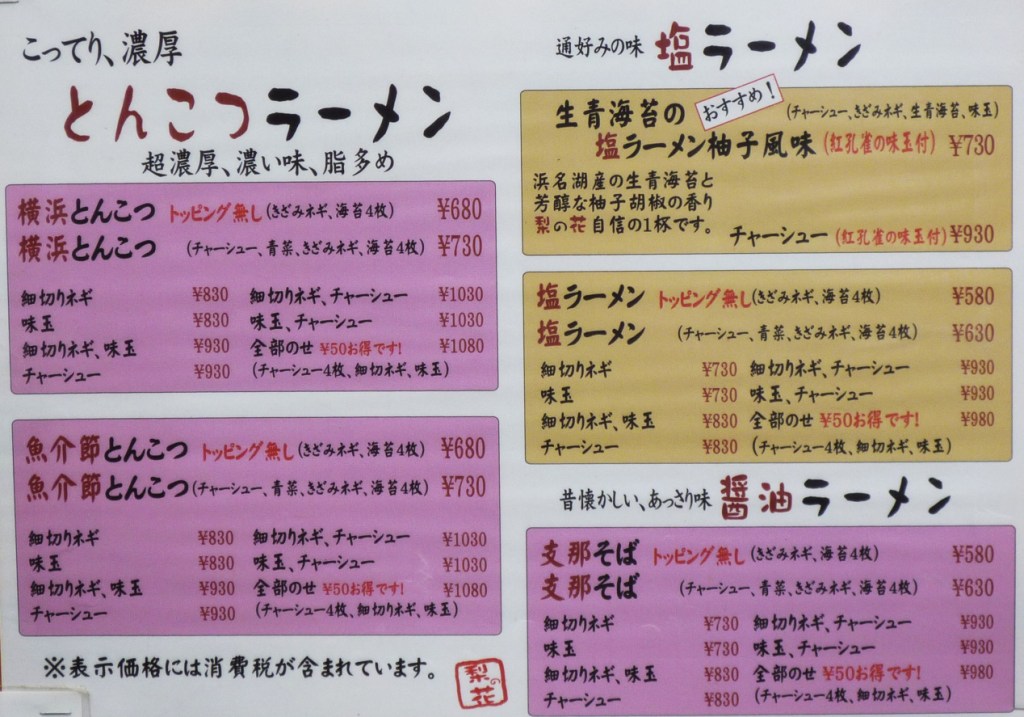 こってり、濃厚
とんこつラーメン
超濃厚、濃い味、脂多め
横浜とんこつ トッピング無し(きざみネギ、海苔4枚) ¥680
横浜とんこつ (チャーシュー、青菜、きざみネギ、海苔4枚) ¥730
細切りネギ ¥830 細切りネギ、チャーシュー ¥1030
味玉 ¥830 味玉、チャーシュー ¥1030
細切りネギ、味玉 ¥930 全部のせ ¥50お得です! ¥1080
チャーシュー ¥930 (チャーシュー4枚、細切ネギ、味玉)
魚介節とんこつ トッピング無し(きざみネギ、海苔4枚) ¥680
魚介節とんこつ(チャーシュー、青菜、きざみネギ、海苔4枚) ¥730
細切りネギ ¥830 細切りネギ、チャーシュー ¥1030
味玉 ¥830 味玉、チャーシュー ¥1030
細切りネギ、味玉 ¥930 全部のせ ¥50お得です! ¥1080
チャーシュー ¥930 (チャーシュー4枚、細切りネギ、味玉)
※表示価格には消費税が含まれています。
梨の花
通好みの味 塩ラーメン
おすすめ!
生青海苔の (チャーシュー、きざみネギ、生青海苔、味玉)
塩ラーメン柚子風味 (紅孔雀の味玉付) ¥730
浜名湖産の生青海苔と
芳醇な柚子胡椒の香り
梨の花自信の1杯です。
チャーシュー (紅孔雀の味玉付) ¥930
塩ラーメン トッピング無し(きざみネギ、海苔4枚) ¥580
塩ラーメン (チャーシュー、青菜、きざみネギ、海苔4枚) ¥630
細切りネギ ¥730 細切りネギ、チャーシュー ¥930
味玉 ¥730 味玉、チャーシュー ¥930
細切りネギ、味玉 ¥830 全部のせ ¥50お得です! ¥980
チャーシュー ¥830 (チャーシュー4枚、細切ネギ、味玉)
昔懐かしい、あっさり味 醤油ラーメン
支那そば トッピング無し(きざみネギ、海苔4枚) ¥580
支那そば (チャーシュー、青菜、きざみネギ、海苔4枚) ¥630
細切りネギ ¥730 細切りネギ、チャーシュー ¥930
味玉 ¥730 味玉、チャーシュー ¥930
細切りネギ、味玉 ¥830 全部のせ ¥50お得です! ¥980
チャーシュー ¥830 (チャーシュー4枚、細切ネギ、味玉)